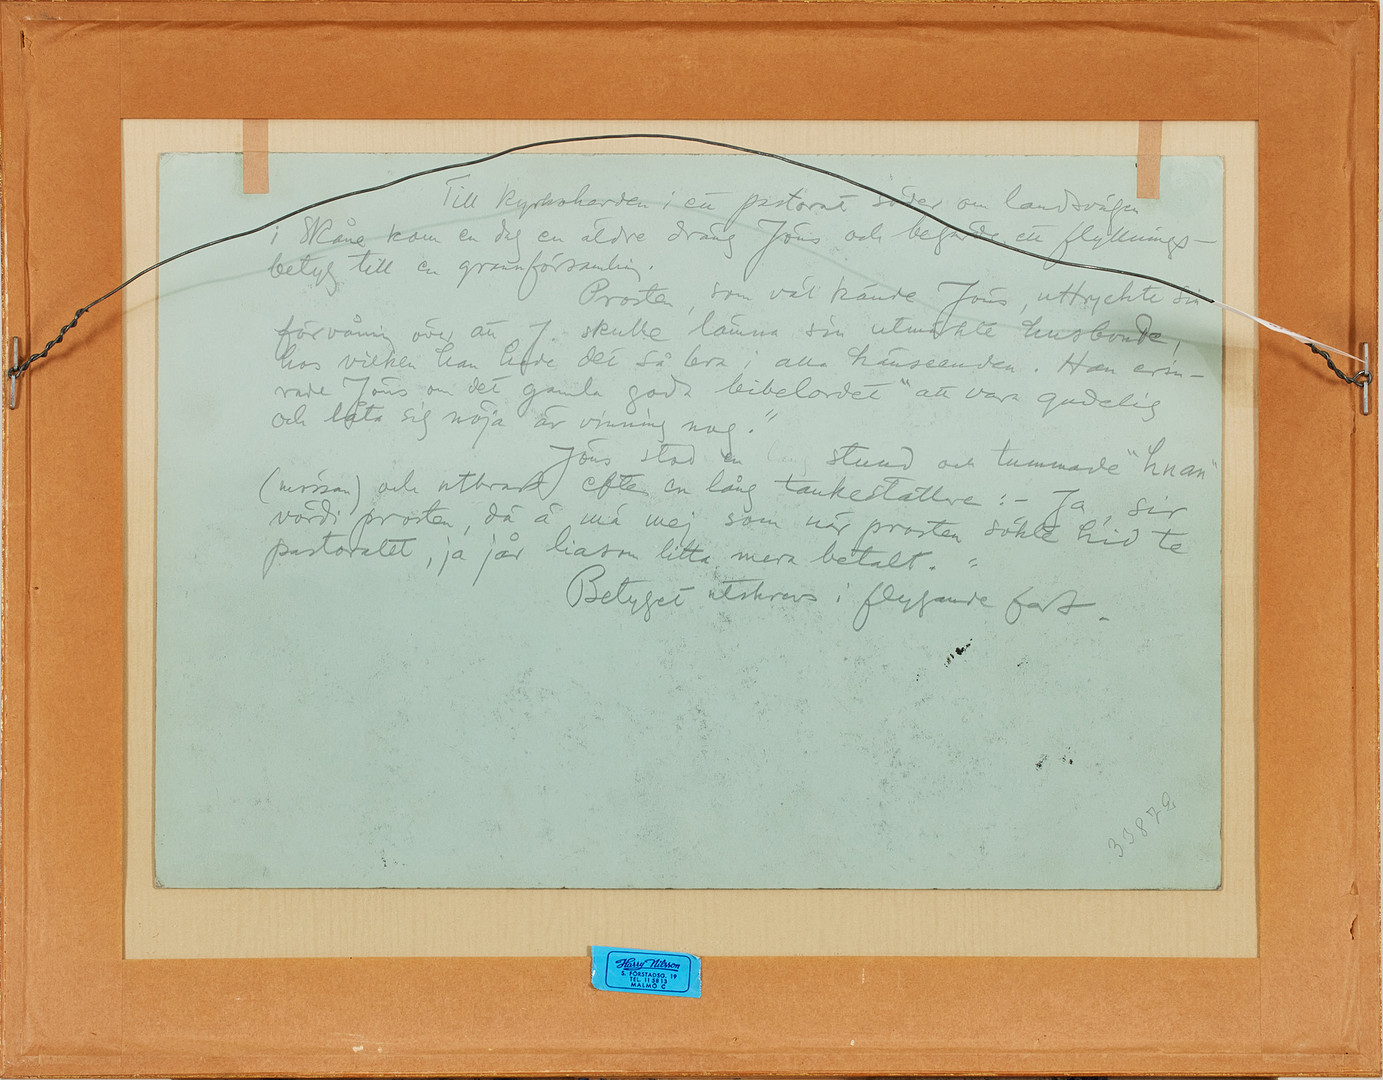 Till kyrkoherden i ett pastorat söder om landsvägen
i Skåne kom en dag en äldre dräng Jöns och begärde ett flyttnings-
betyg till en grannförsamling.
Prosten, som väl kände Jöns, uttryckte sin
förvåning över att J. skulle lämna sin utmärkte husbonde,
hos vilken han hade det så bra i alla hänseenden. Han erin-
rade Jöns om det gamla goda bibelordet "att vara gudelig
och låta sig nöja är vinning nog."
Jöns stod en lång stund och tummade "huan"
(mössan) och utbrast efter en lång tankeställare: - Ja, sir
vördi prosten, då å må mej som når prosten sökte hid te
pastoratet, ja jår liasom litta mera betalt."
Betyget utskrevs i flygande fart.
33872
Harry Nilsson
S. FÖRSTADSG. 19
TEL. 11 88 13
MALMÖ C